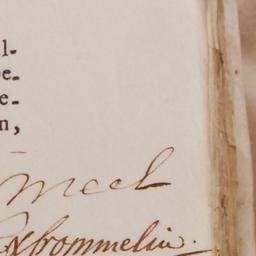 l-
e-
e-
n,
Meel
Crommelin.